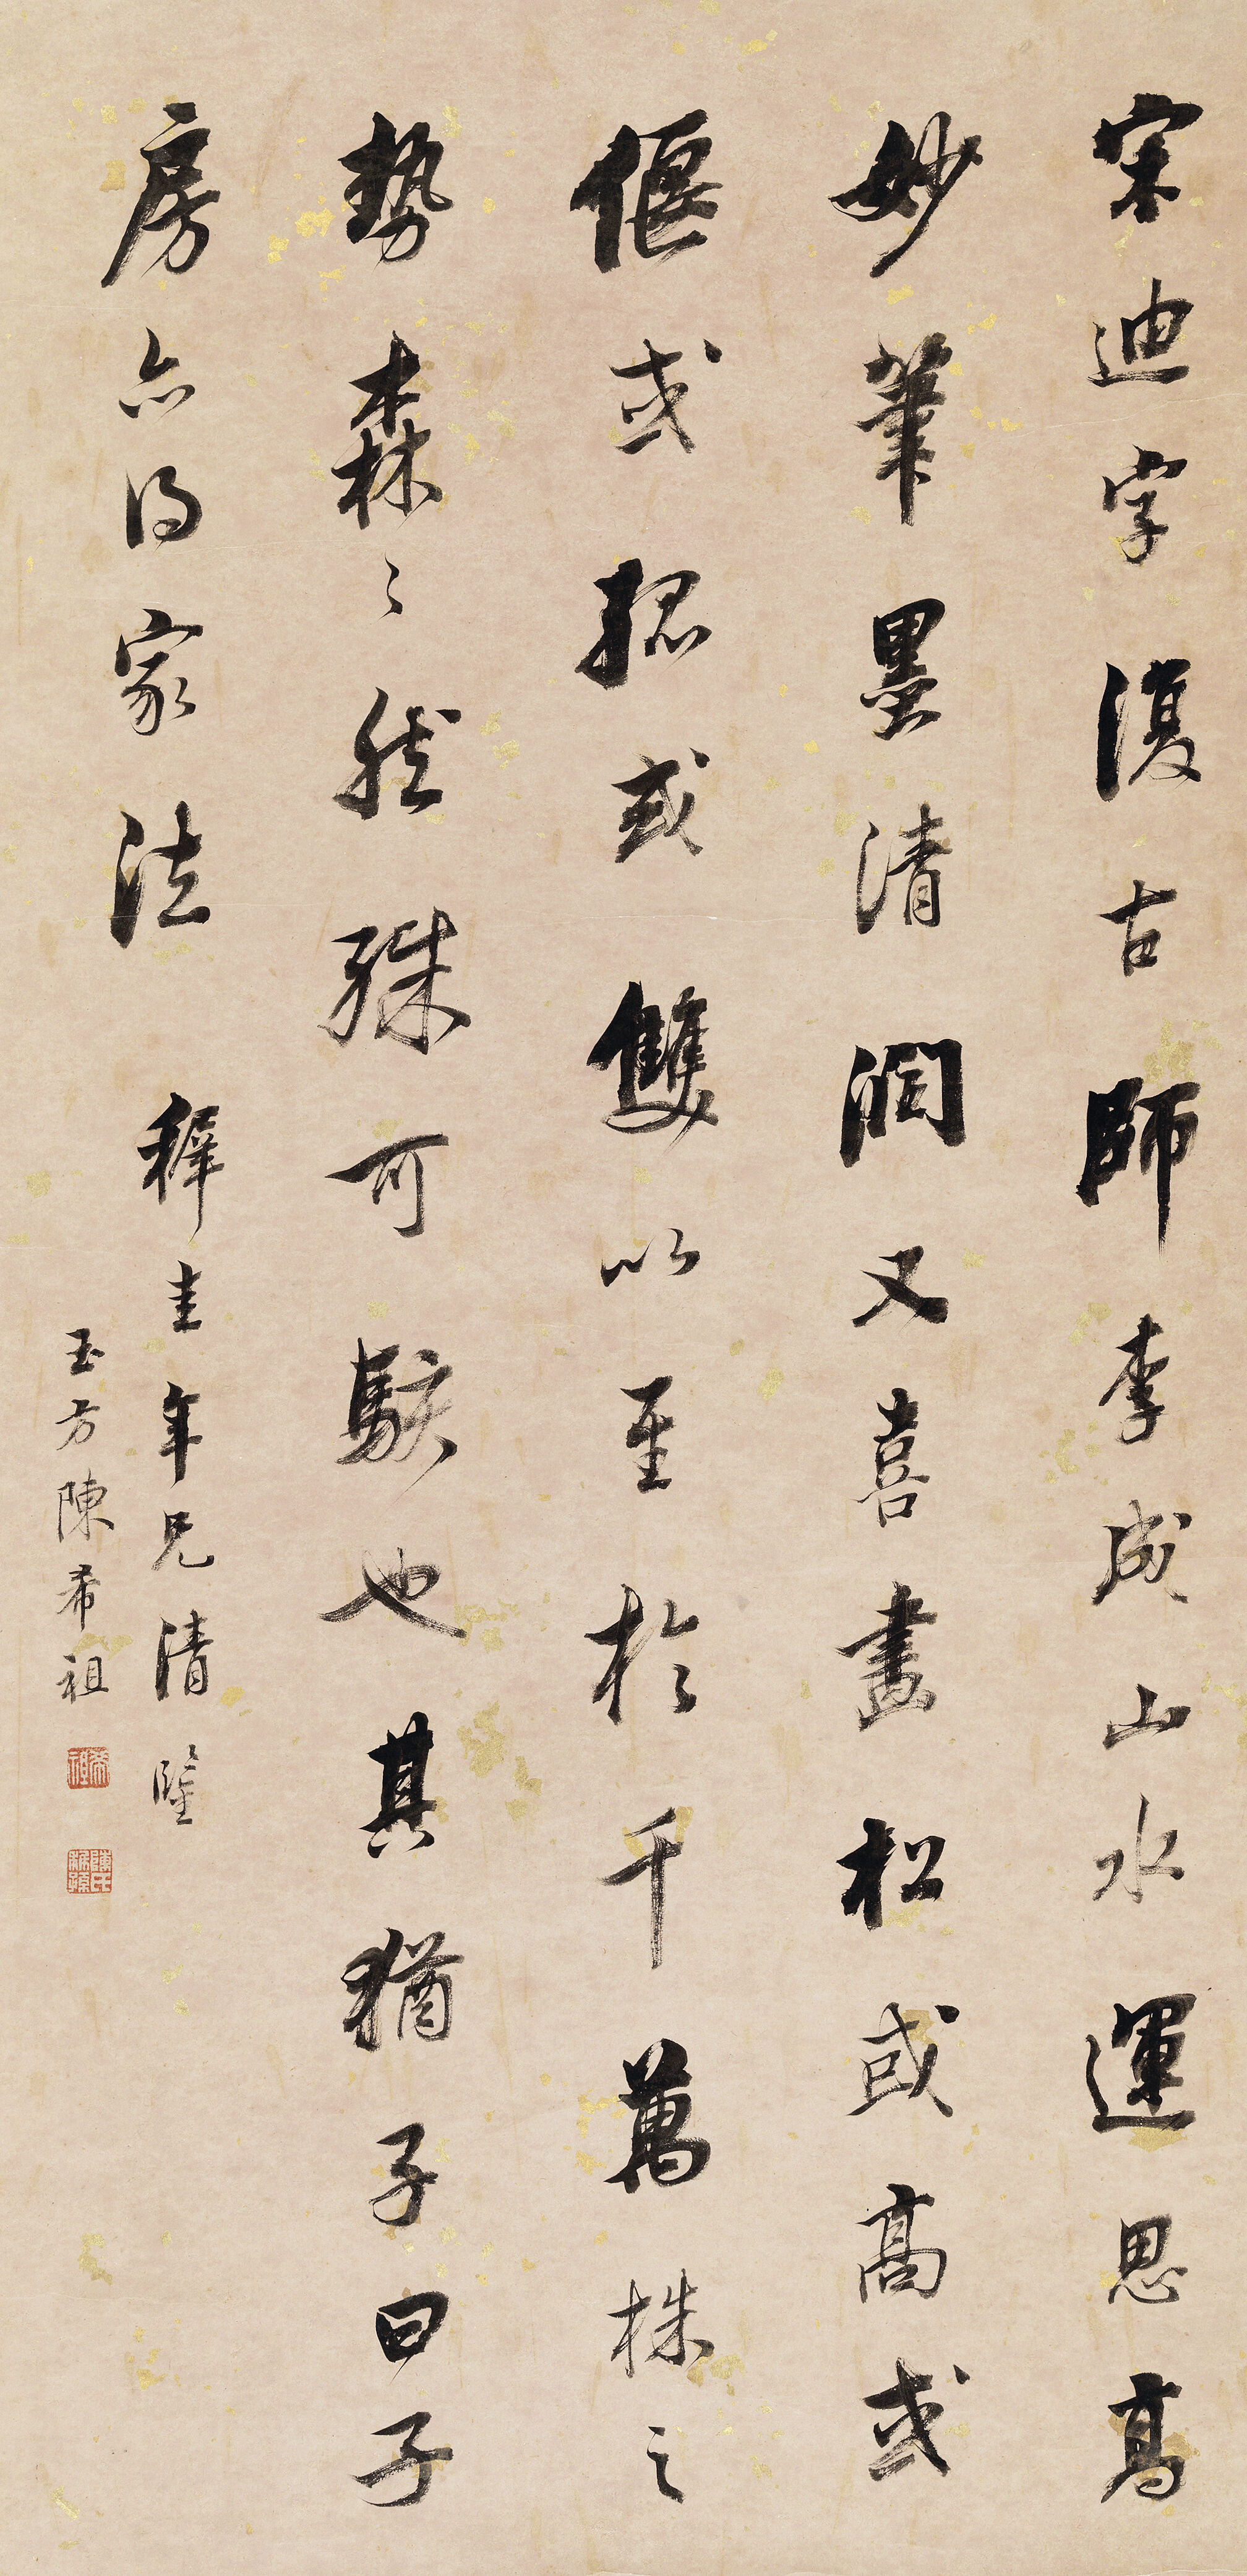 宋迪字復古師李成山水運思高
妙筆墨清潤又喜畫松或高或
偃或孤或雙以至於千萬株之
勢森〻然殊可駭也其猶子曰子
房亦得家法
稺圭年兄清鑒
玉方陳希祖
希祖